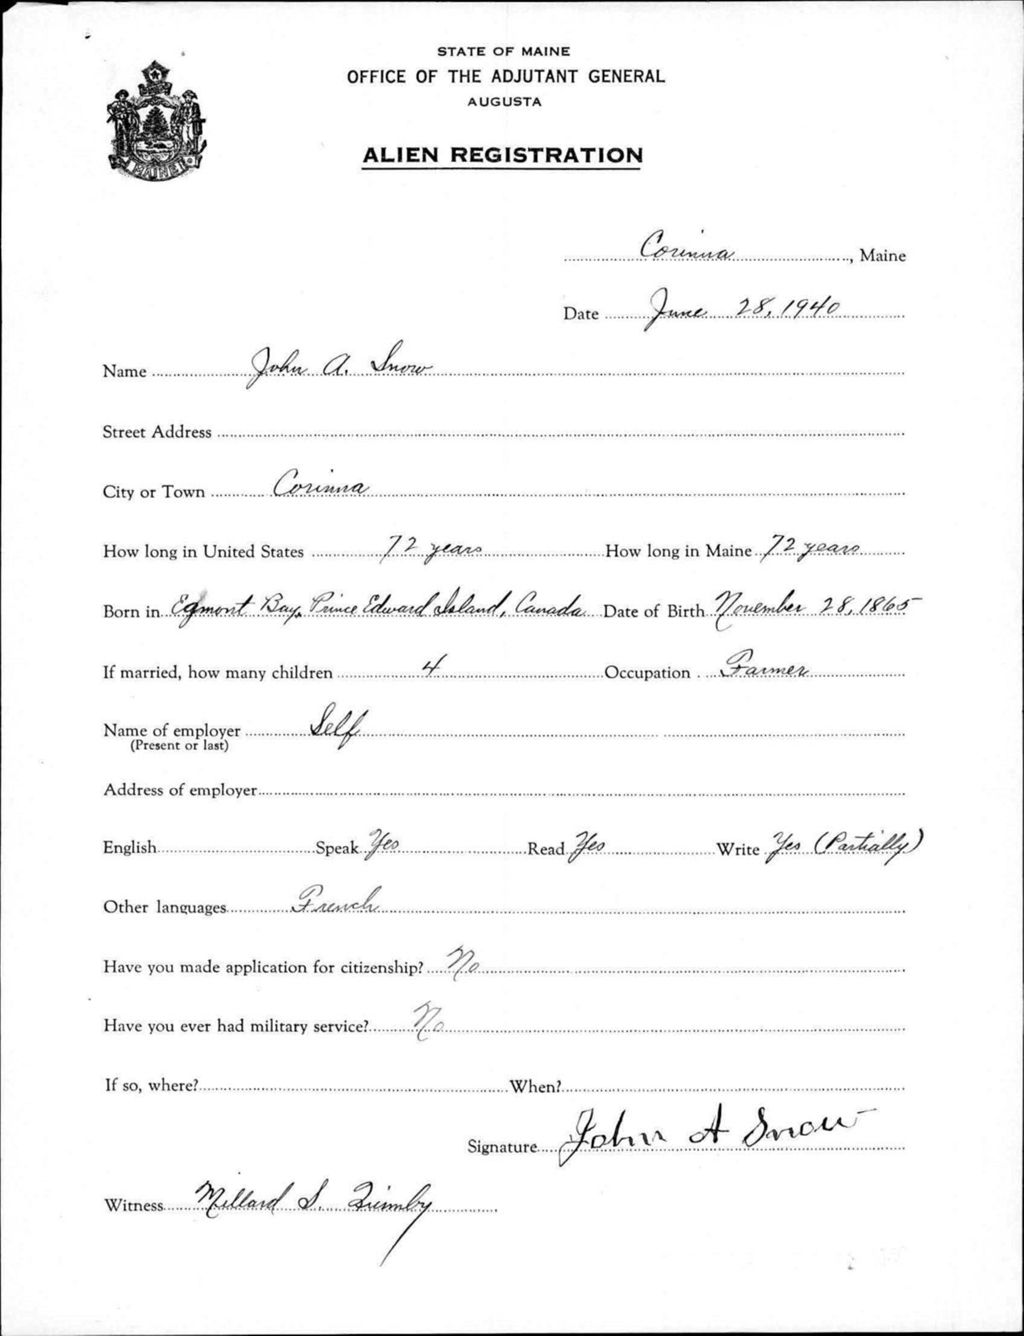 STATE OF MAINE
OFFICE OF THE ADJUTANT GENERAL
AUGUSTA
ALIEN REGISTRATION
MAINE
Corinna, Maine
Date June 28, 1940
Name John A. Snow
Street Address
City or Town Corinna
How long in United States 72 years How long in Maine 72 years
Born in Egmont Bay, Prince Edward Island, Canada Date of Birth November 28, 1865
If married, how many children 4 Occupation Farmer
Name of employer Self
(Present or last)
Address of employer
English Speak Yes Read Yes Write Yes (Partially)
Other languages French
Have you made application for citizenship? No
Have you ever had military service? No
If so, where? When?
Signature John A Snow
Witness Millard S. Quimby